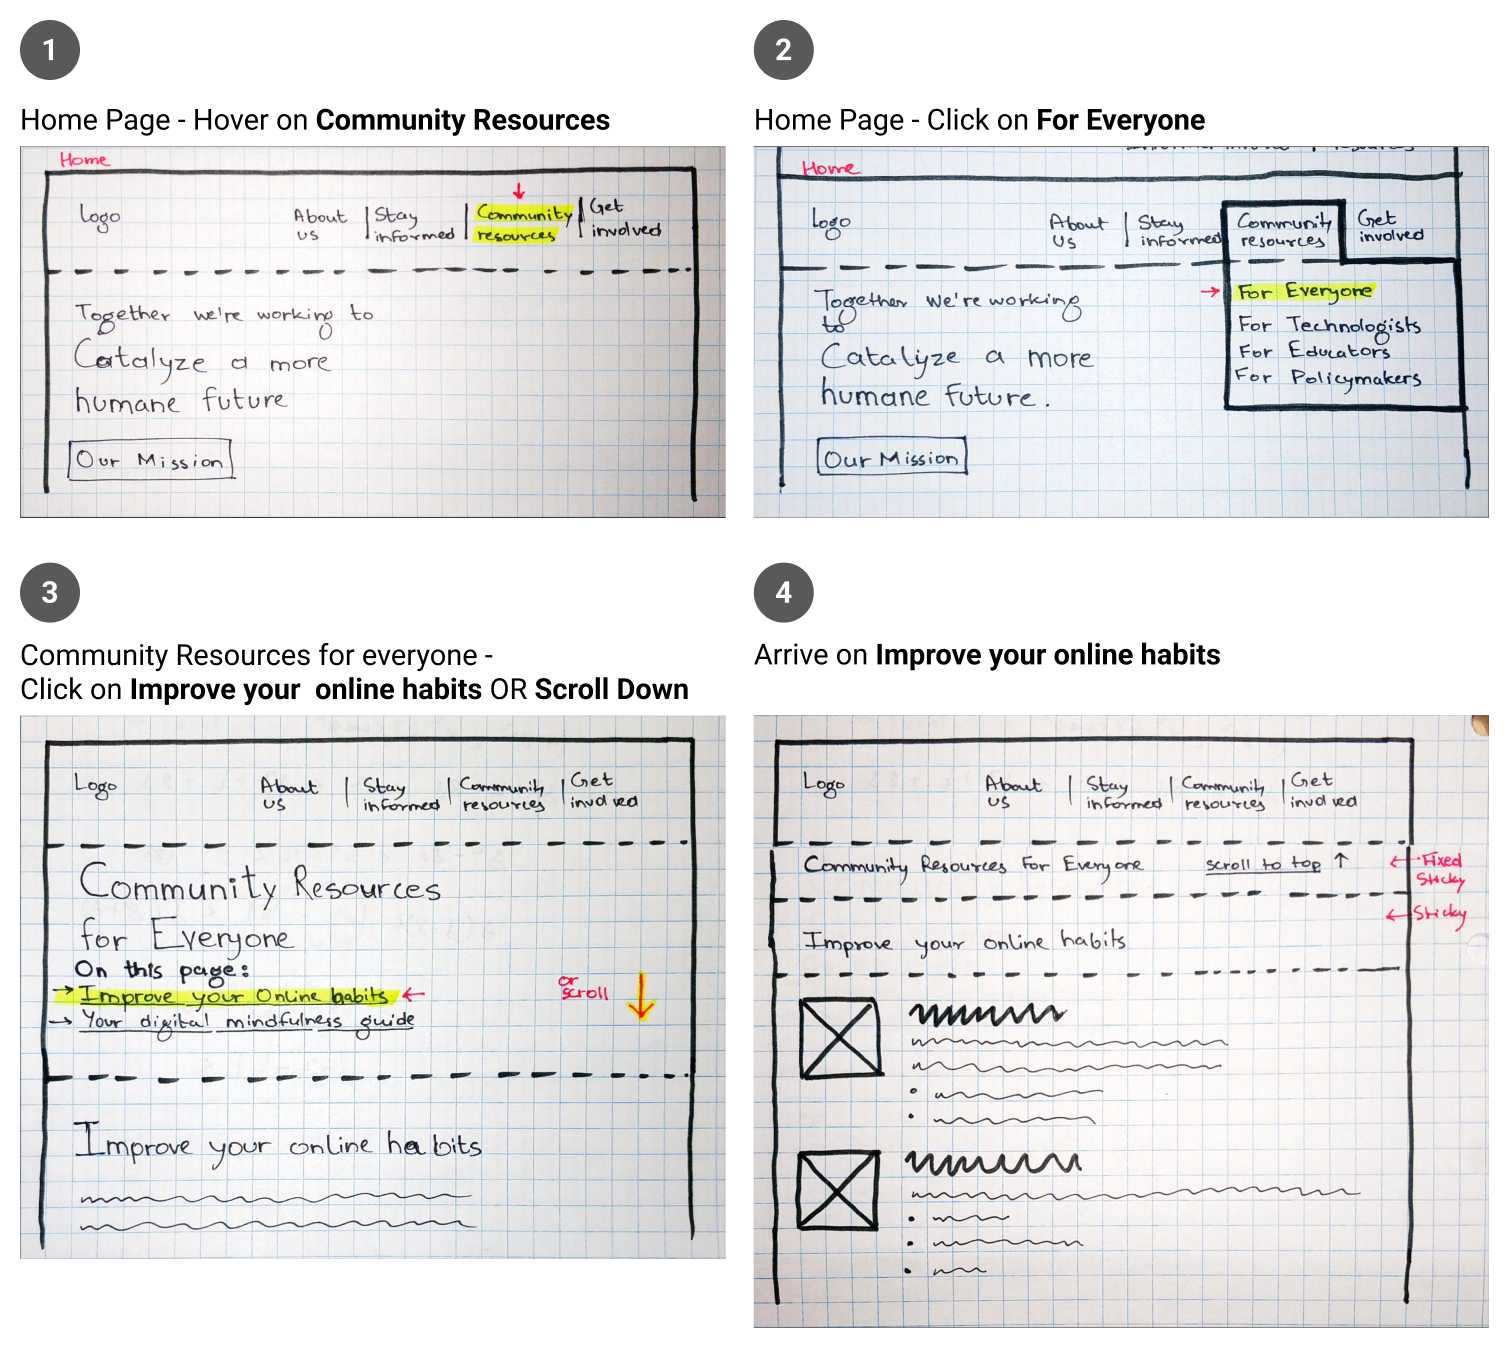 1
Home Page - Hover on Community Resources
Home
Logo
About us
Stay informed
Community resources
Get involved
Together we're working to
Catalyze a more
humane future
Our Mission
2
Home Page - Click on For Everyone
Home
Logo
About Us
Stay informed
Community resources
Get involved
For Everyone
For Technologists
For Educators
For Policymakers
Together we're working
to
Catalyze a more
humane future.
Our Mission
3
Community Resources for everyone -
Click on Improve your online habits OR Scroll Down
Logo
About us
Stay informed
Community resources
Get involved
Community Resources
for Everyone
On this page:
→ Improve your Online habits ←
→ Your digital mindfulness guide
or
scroll
Improve your online habits
4
Arrive on Improve your online habits
Logo
About us
Stay informed
Community resources
Get involved
Community Resources For Everyone
scroll to top ↑
← Fixed
Sticky
← Sticky
Improve your online habits